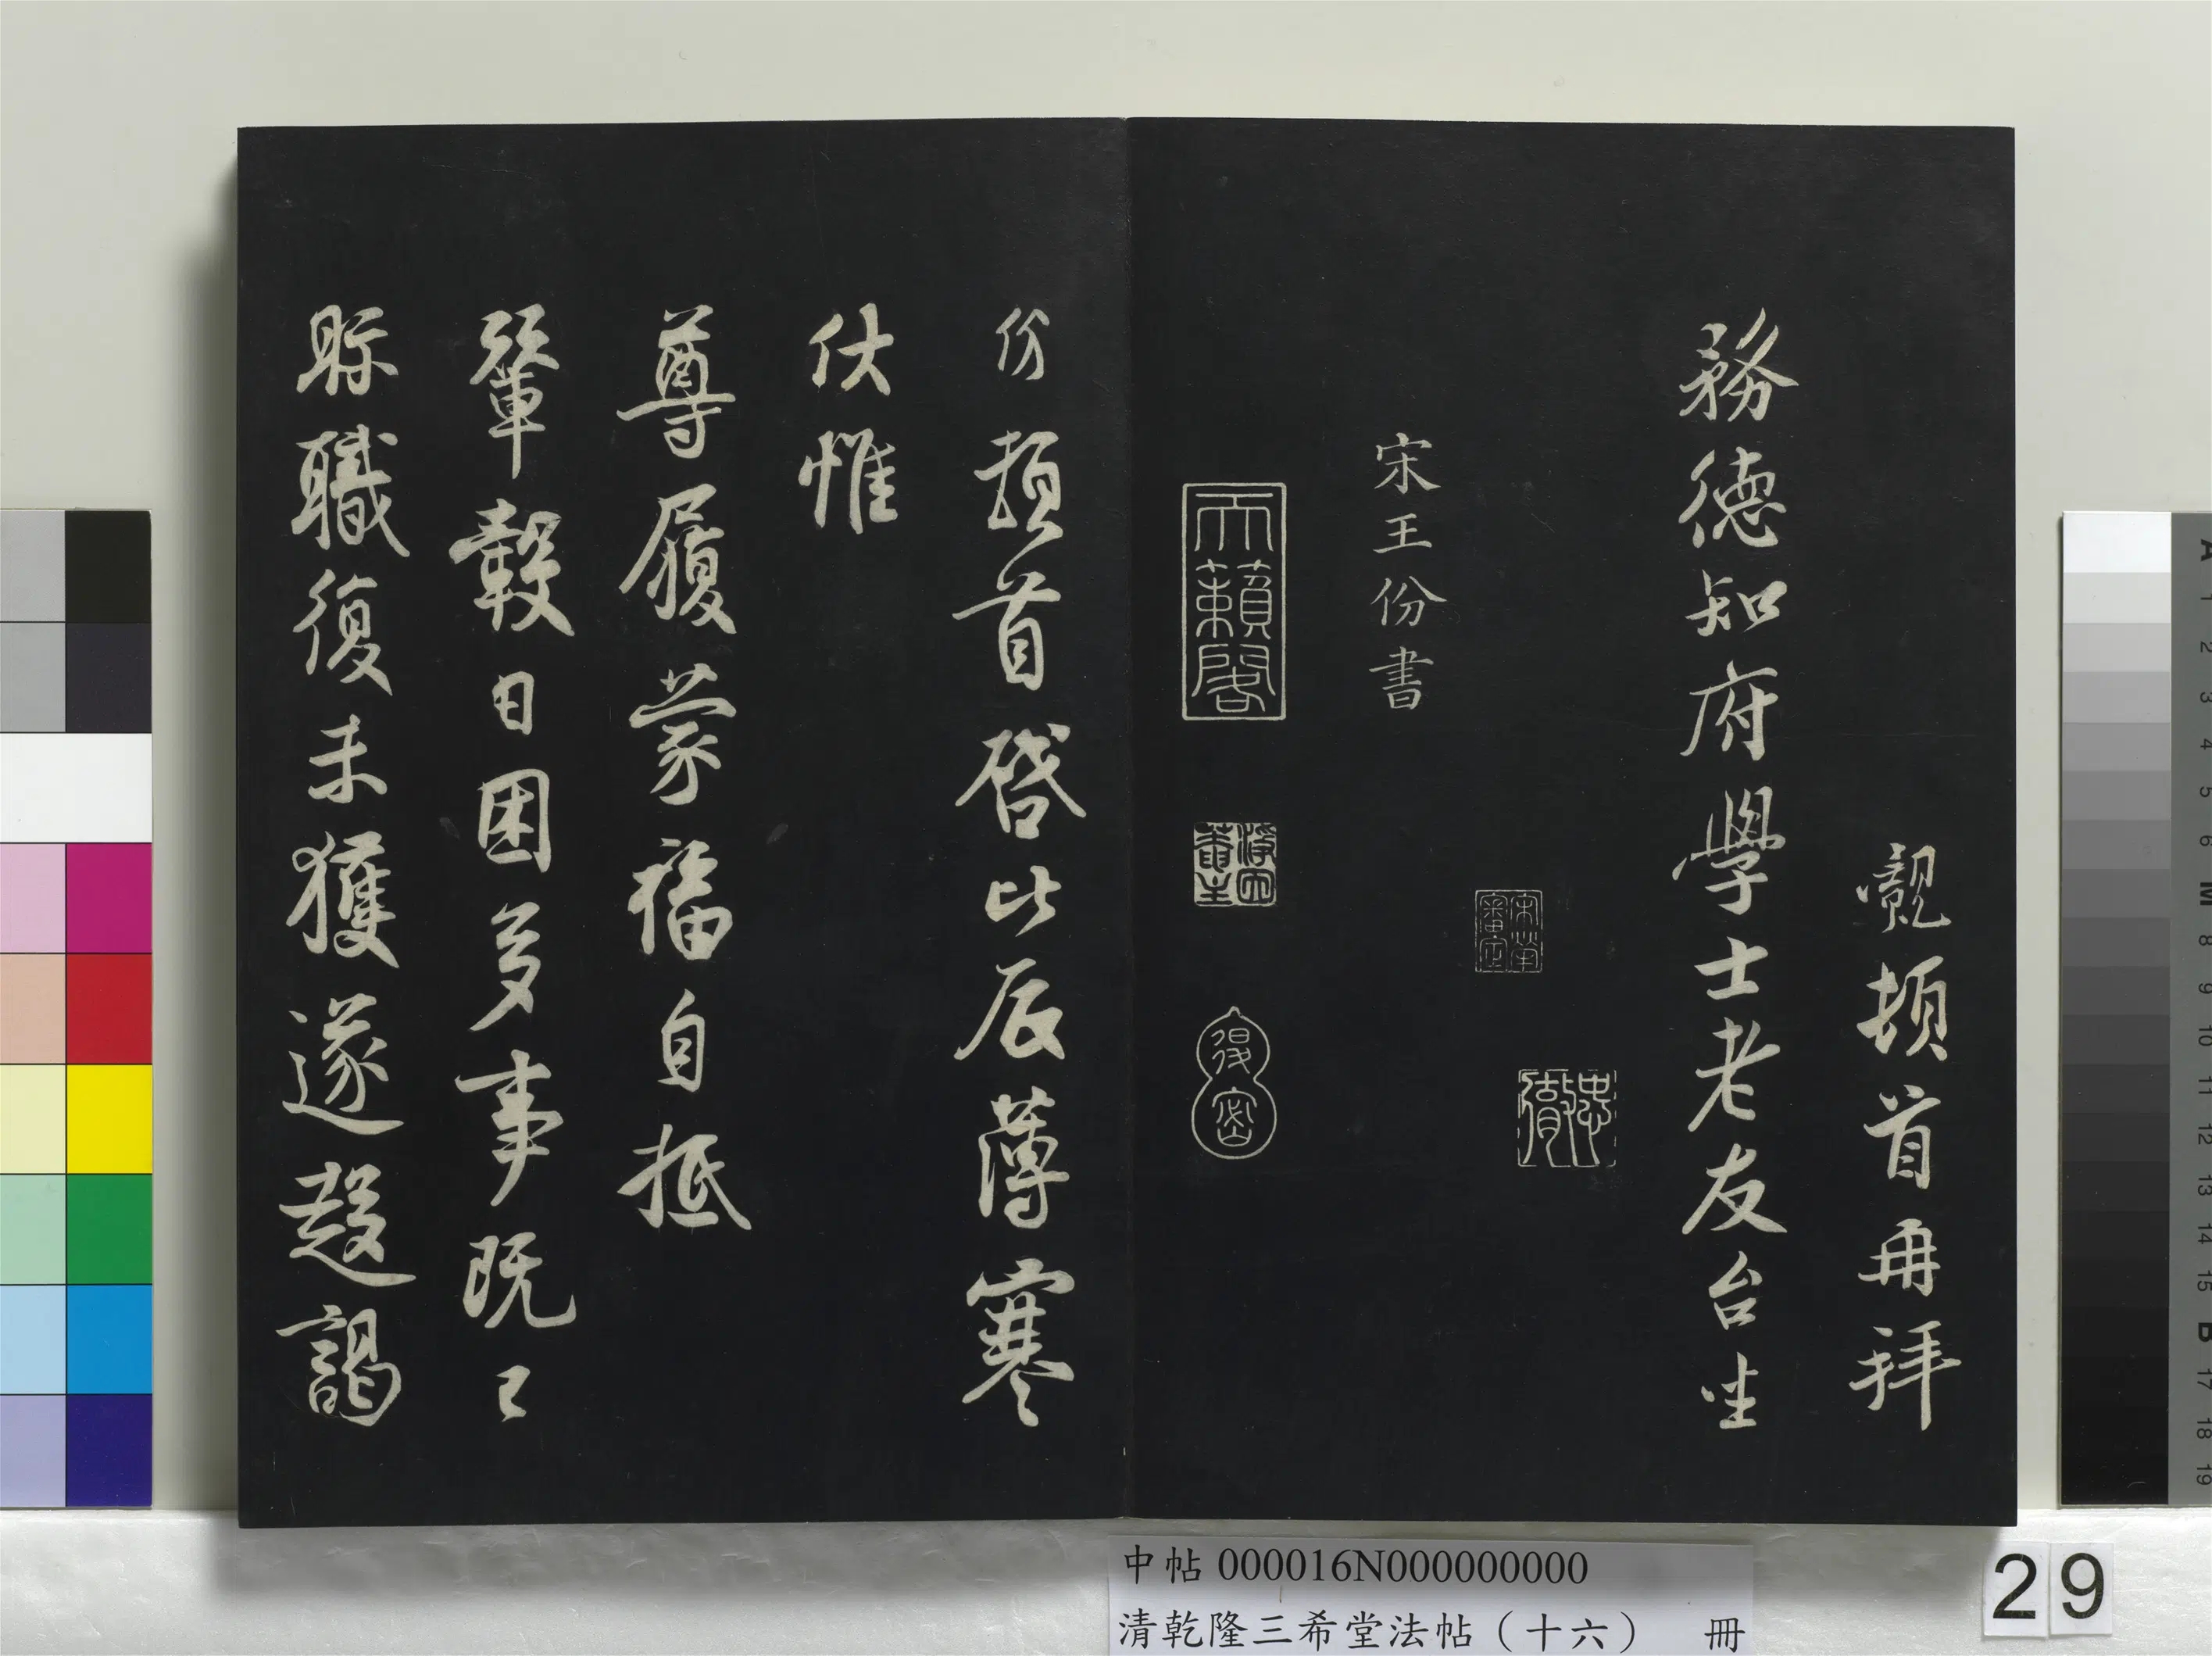 覿頓首再拜
務德知府學士老友台坐
宋王份書
天籟閣
得密
份頓首啓比辰薄寒
伏惟
尊履蒙福自抵
輦轂日困多事既已
賑職復未獲遂趍謁
中帖 000016N000000000
清乾隆三希堂法帖（十六） 冊
29